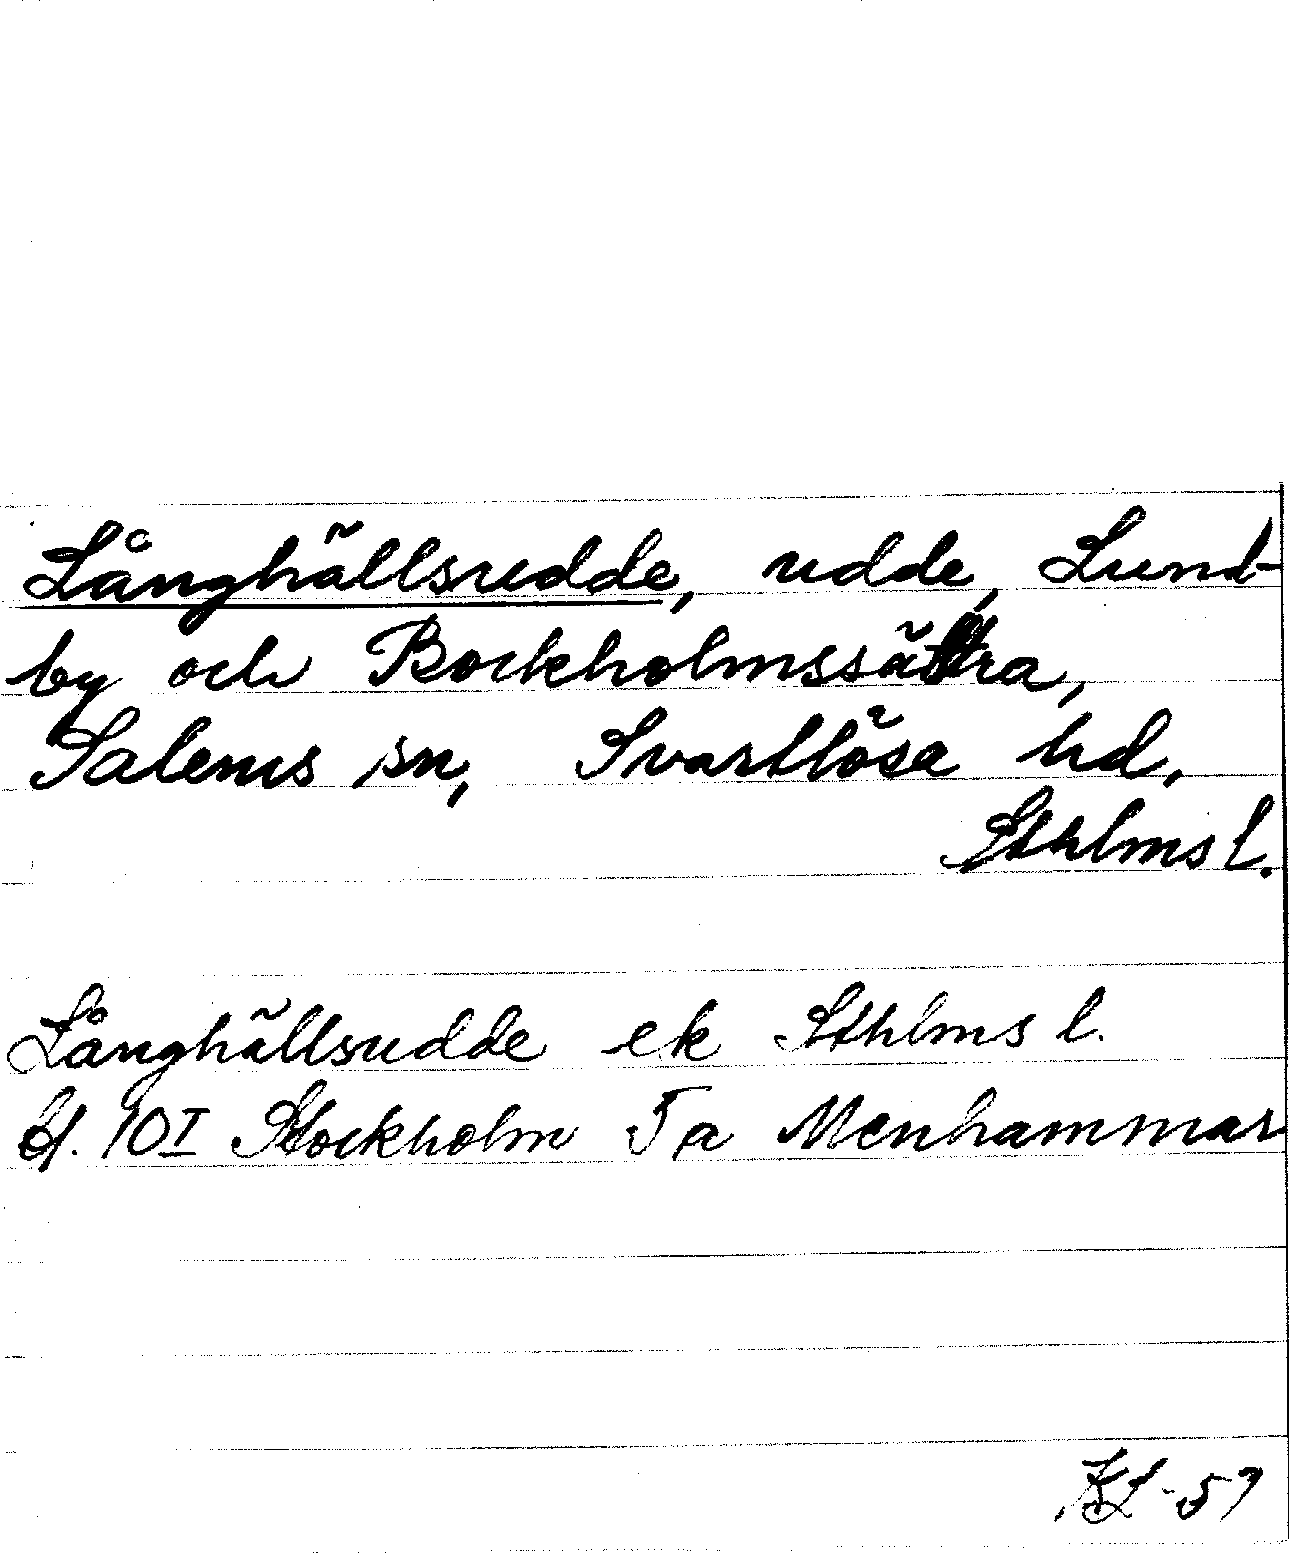 Långhällsudde, udde, Lund-
by och Bockholmssättra,
Salems sn, Svartlösa hd,
Sthlms l.
Långhällsudde ek Sthlms l.
bl. 10I Stockholm 5 a Menhammar
KL-57